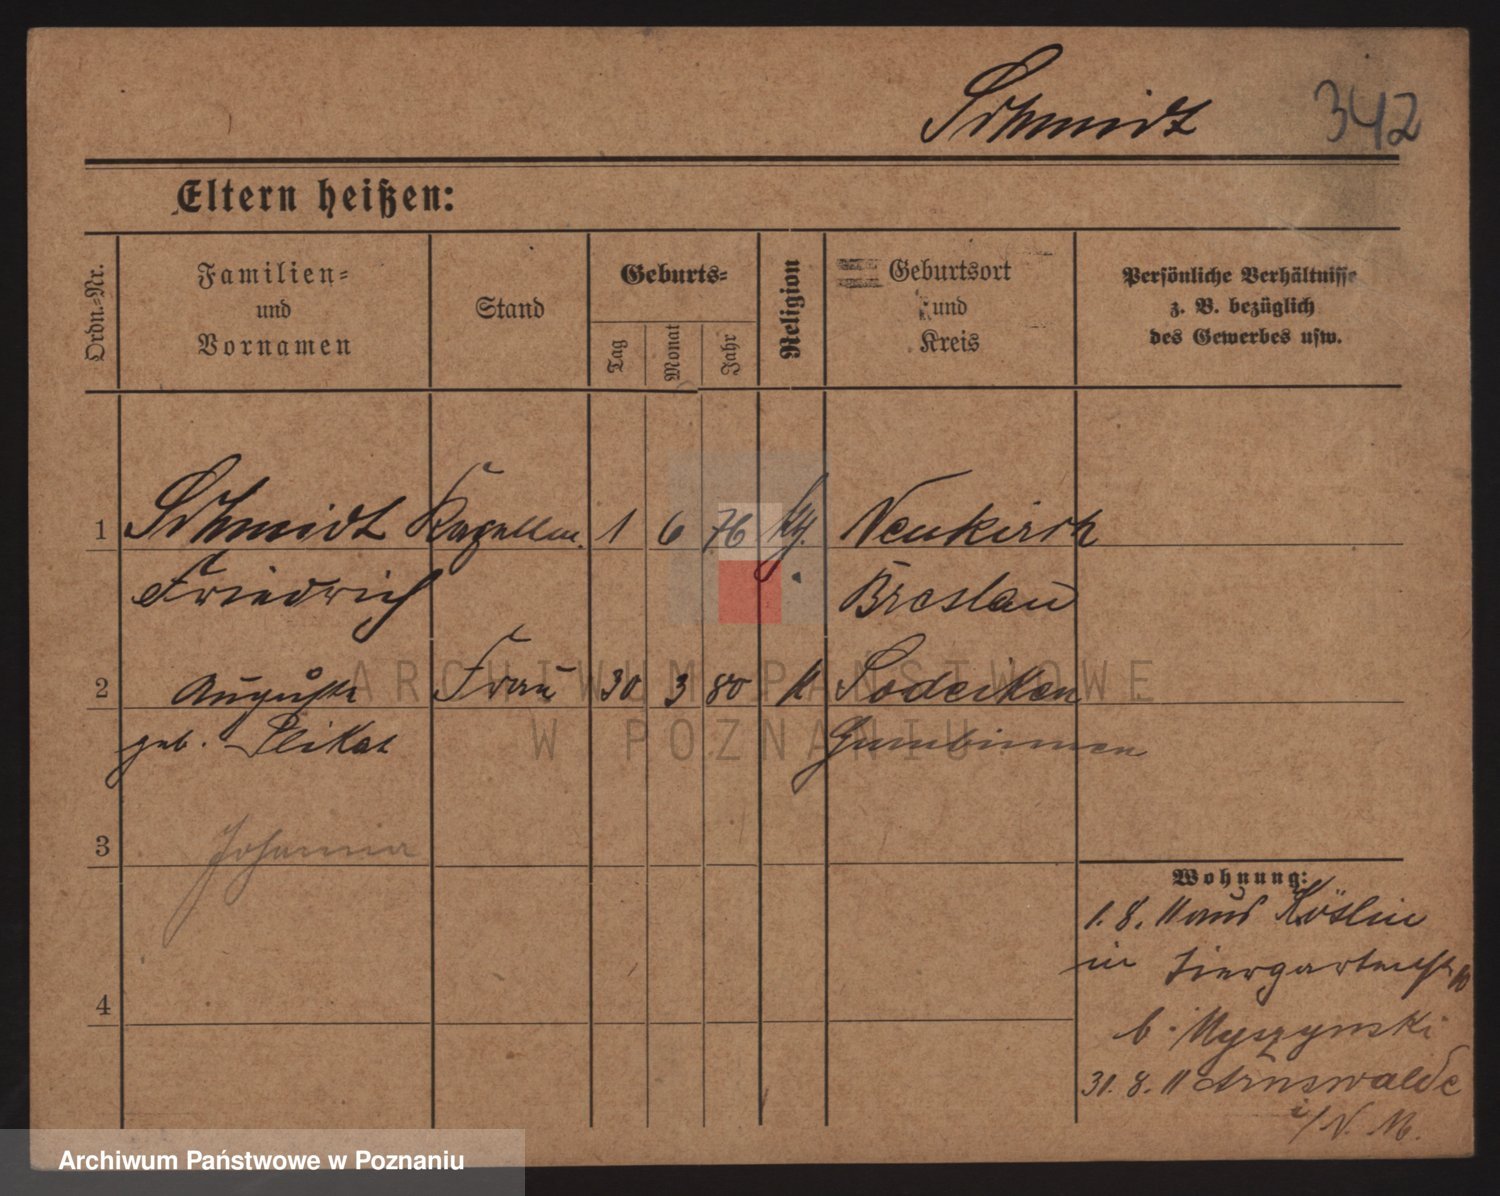 Schmidt 342
Eltern heißen:
Ordn.-Nr.
Familien-
und
Vornamen
Stand
Geburts-
Tag
Monat
Jahr
Religion
Geburtsort
und
Kreis
Persönliche Verhältnisse
z. B. bezüglich
des Gewerbes usw.
1 Schmidt 1 6 76 Neukirch
Friedrich Breslau
2 Auguste Frau 30 3 80 Sodeiken
geb. Plikat Gumbinnen
3 Johanna
4
Wohnung:
1. 8. 11 aus Köslin
in Tiergartenstr
b. Myszynski
31. 8. 11 Arnswalde
i/N. M.
ARCHIWUM PAŃSTWOWE
W POZNANIU
Archiwum Państwowe w Poznaniu